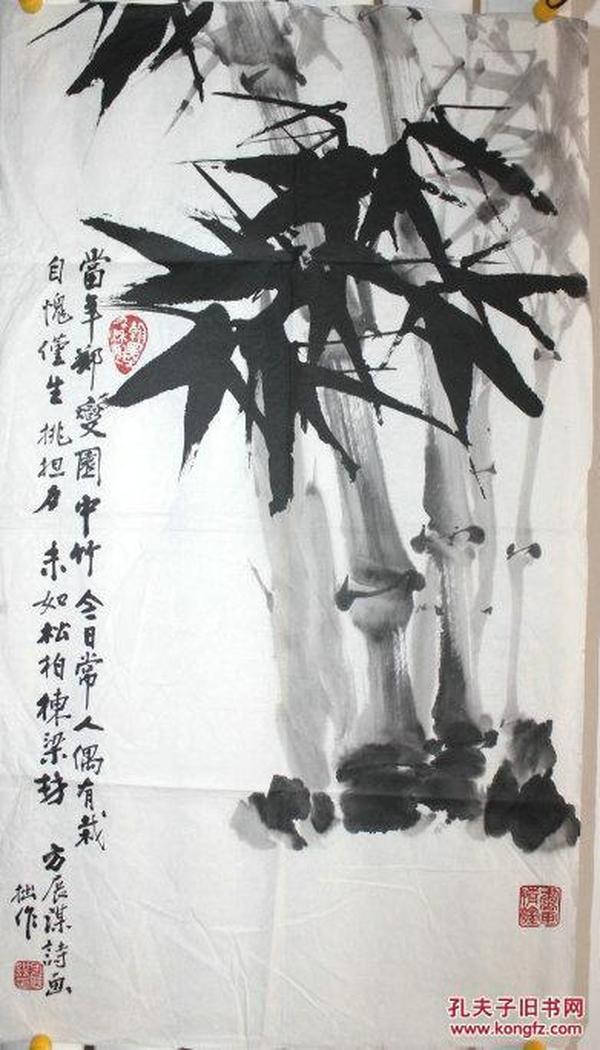 當年鄭燮園中竹今日常人偶有栽
自愧僅生挑担力未如松柏棟梁材
方辰謀詩画
拙作
孔夫子旧书网
www.kongfz.com